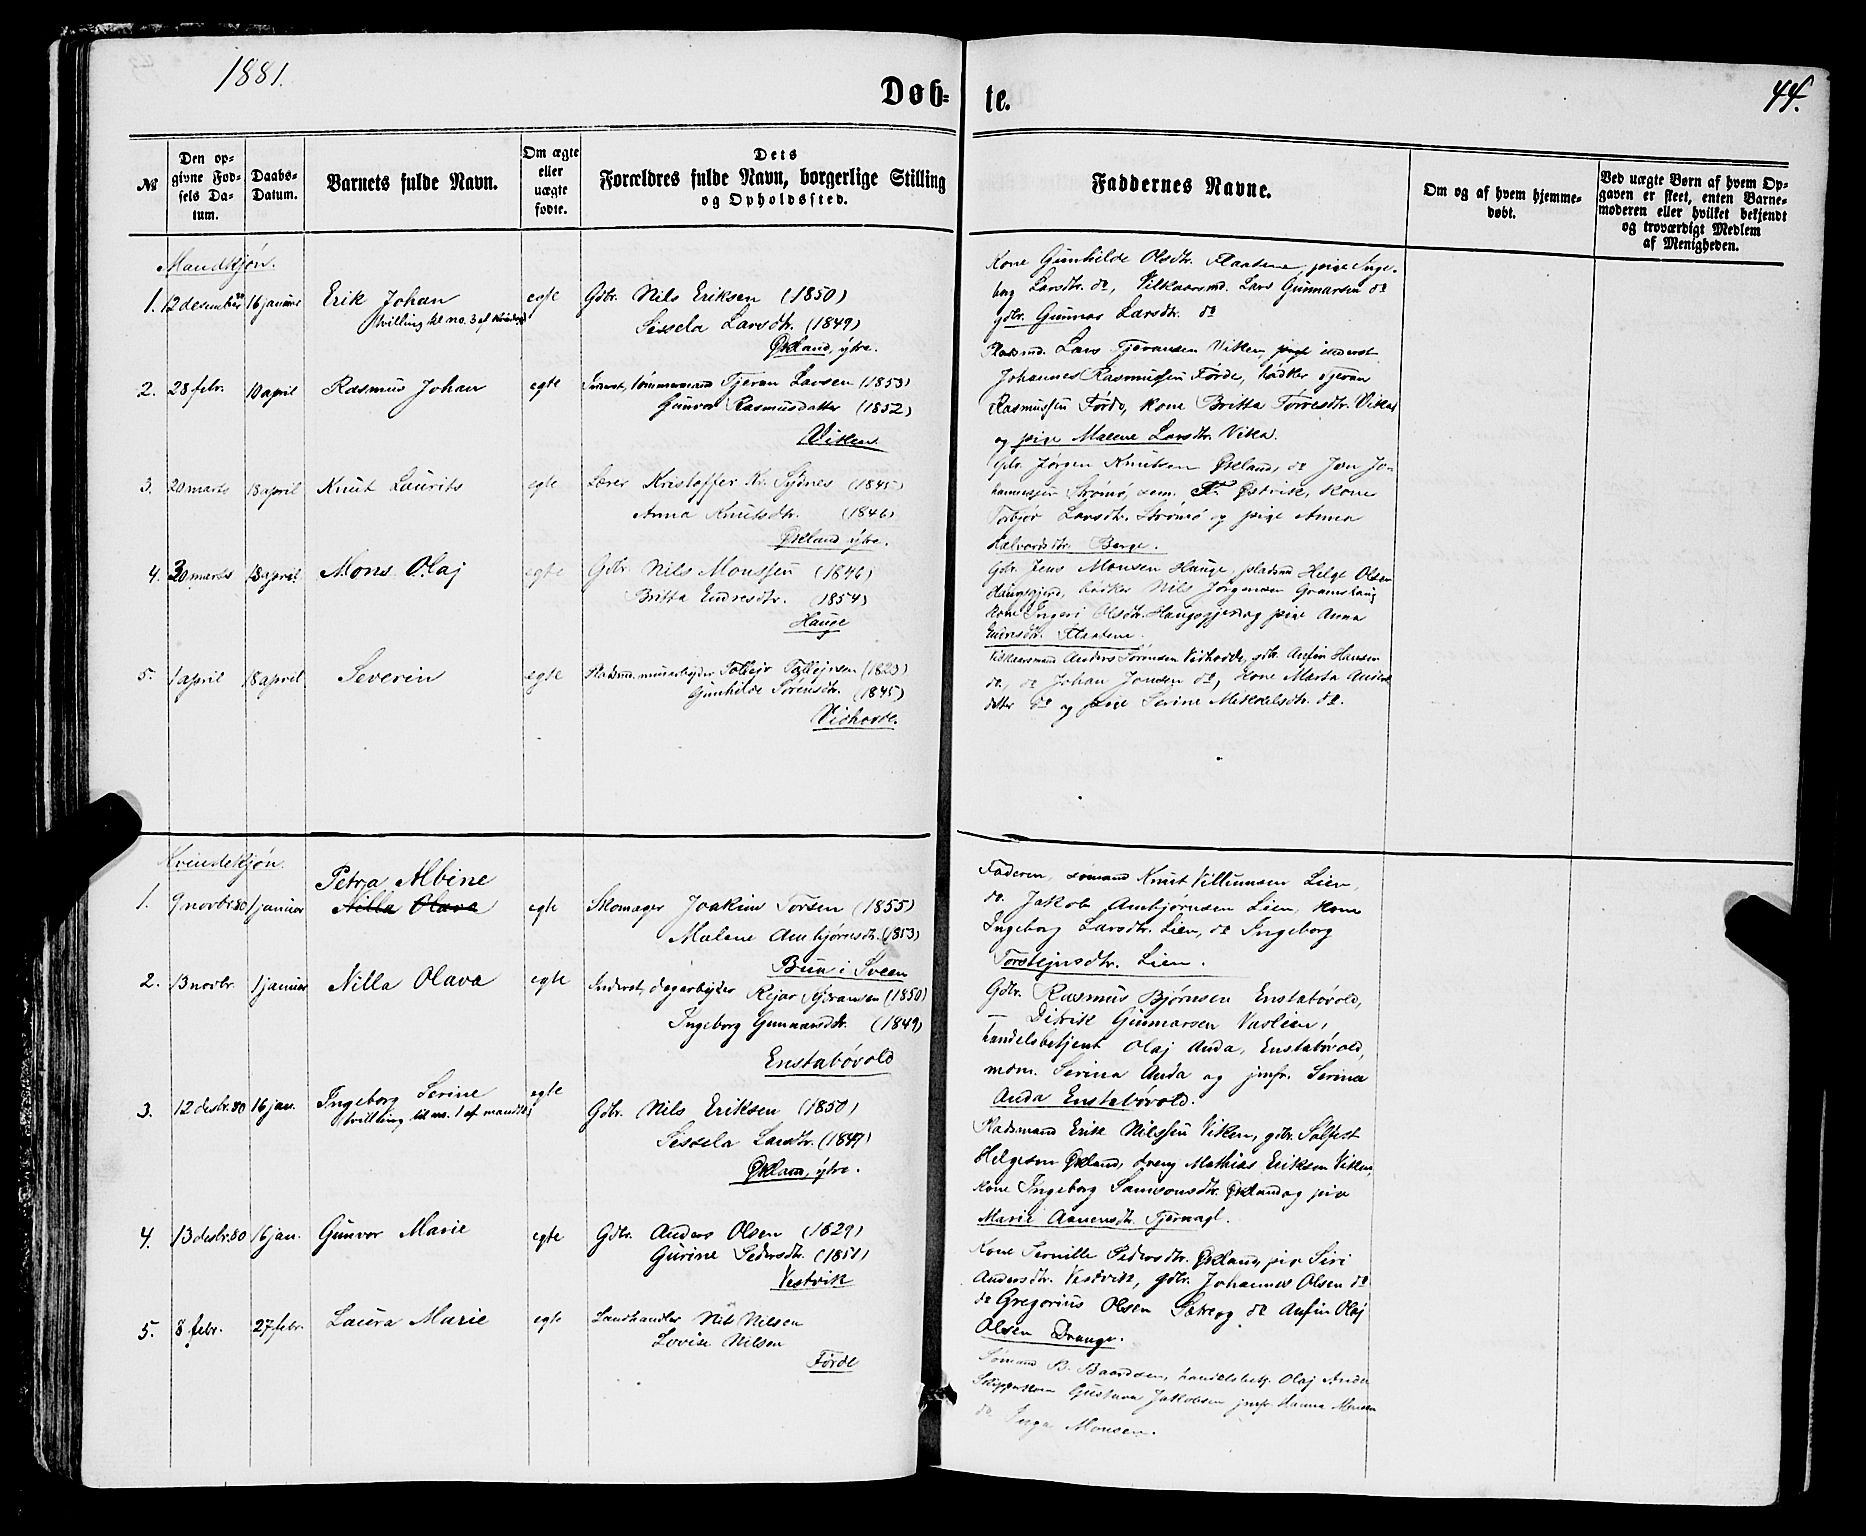 1881.
Døb-
te.
44.
№
Den op-
givne Fød-
sels Da-
tum.
Daabs-
Datum.
Barnets fulde Navn.
Om ægte
eller
uægte
fødte.
Dets
Forældres fulde Navn, borgerlige Stilling
og Opholdssted.
Faddernes Navne.
Om og af hvem hjemme-
døbt.
Ved uægte Børn af hvem Op-
gaven er skeet, enten Barne-
moderen eller hvilket bekjendt
og troværdigt Medlem
af Menigheden.
Mandkjøn.
1. 12 desember 16 januar Erik Johan egte Gdbr. Nils Eriksen (1850)
tvilling til no. 3 af
Sissela Larsdtr. (1849)
Økland, ytre.
Kone Gunhilde Olsdtr. Flaatene, pige Inge-
borg Larsdtr. do, Vilkaarsmd. Lars Gunnarsen do
gdbr. Gunnar Larsdtr. do
2. 28 febr. 10 april Rasmus Johan egte Inderst, tømmermand Tjeran Larsen (1853)
Gunvor Rasmusdatter (1852)
Viken
Pladsmd. Lars Tjeransen Viken, inderst
Johannes Rasmussen Førde, bødker Tjeran
Rasmussen Førde, kone Britta Torresdtr. Vika
og pige Malene Larsdtr. Vika.
3. 20 marts 18 april Knut Laurits egte Lærer Kristoffer Kr. Sydnes (1845)
Anna Knutsdtr. (1846)
Økland ytre.
Gdbr. Jørgen Knutsen Økland, do Jon Jo-
hannessen Strømø, sem. Østvik, kone
Torbjør Larsdtr. Strømø og pige Anna
Halvorsdtr. Berge.
4. 30 marts 18 april Mons Olaj egte Gdbr. Nils Monssen (1846)
Britta Endresdtr. (1854)
Hauge
Gdbr. Jens Monsen Hauge, pladsmd Helge Olsen
Haugegjerd, bødker Nils Jørgensen
kone Ingeri Olsdtr. Haugegjerd og pige Anna
Endresdtr. Flaatene.
5. 1 april 18 april Severin egte Pladsmd. minearbejder Tollejv Tollejvsen (1823)
Gunhilde Sørensdtr. (1845)
Vidhovde.
Vilkaarsmand Anders Sørensen Vidhovde, gdbr. Anfin Hansen
do, do Johan Jonsen do, Kone Marta Anders
datter do og pige Serine Mikkelsdtr. do.
Kvindekjøn.
Petra Albine
1. 9 novbr 80 1 januar Nilla Olava egte Skomager Joakim Torsen (1855)
Malene Ambjørnsdtr. (1853)
Bua i Sveen
Faderen, sømand Knut Villumsen Lien,
do. Jakob Ambjørnsen Lien, kone
Ingeborg Larsdtr. Lien, do Ingeborg
Torstejnsdtr. Lien.
2. 13 novbr. 1 januar Nilla Olava egte Inderst, dagarbejder Rejar Tjeransen (1850)
Ingeborg Gunnarsdtr. (1849)
Enstabøvold
Gdbr. Rasmus Bjørnsen Enstabøvold,
— Didrik Gunnarsen Vaslien,
handelsbetjent Olaj Anda, Enstabøvold,
mom. Serina Anda og jmfr. Serina
Anda Enstabøvold.
3. 12 desbr. 80 16 jan. Ingeborg Serine egte
tvilling til no. 1 af mandkj.
Gdbr. Nils Eriksen (1850)
Sissela Larsdtr. (1849)
Økland, ytre.
Pladsmand Erik Nilssen Viken, gdbr. Salfest
Helgesen Økland, dreng Mathias Eriksen Viken,
kone Ingeborg Samsonsdtr. Økland og pige
Marie Aanensdtr. Tjernagl.
4. 13 desbr. 80 16 jan. Gunvor Marie egte Gdbr. Anders Olsen (1829)
Gurine Pedersdtr. (1851)
Vestvik
Kone Pernille Pedersdtr. Økland, pige Siri
Andersdtr. Vestvik, gdbr. Johannes Olsen do
do Gregorius Olsen og do Anfin Olaj
Olsen Drange.
5. 8 febr. 27 febr. Laura Marie egte Landhandler Nils Nilsen
Lovise Nilsen
Førde
Sømand B. Baardsen, handelsbetj. Olaj Anda
Skipperkone Gustava Jakobsen jmfr. Hanna Monsen
do Inga Monsen.